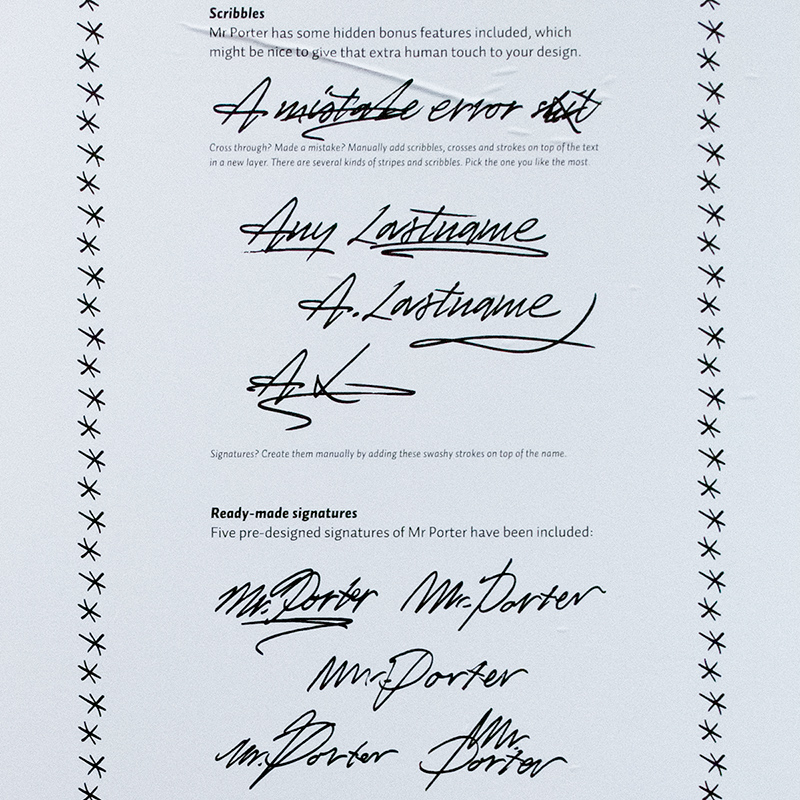 Scribbles
Mr Porter has some hidden bonus features included, which
might be nice to give that extra human touch to your design.
A mistake error shit
Cross through? Made a mistake? Manually add scribbles, crosses and strokes on top of the text
in a new layer. There are several kinds of stripes and scribbles. Pick the one you like the most.
Any Lastname
A. Lastname
A. L
Signatures? Create them manually by adding these swashy strokes on top of the name.
Ready-made signatures
Five pre-designed signatures of Mr Porter have been included:
Mr. Porter Mr. Porter
Mr. Porter
Mr. Porter Mr.
Porter